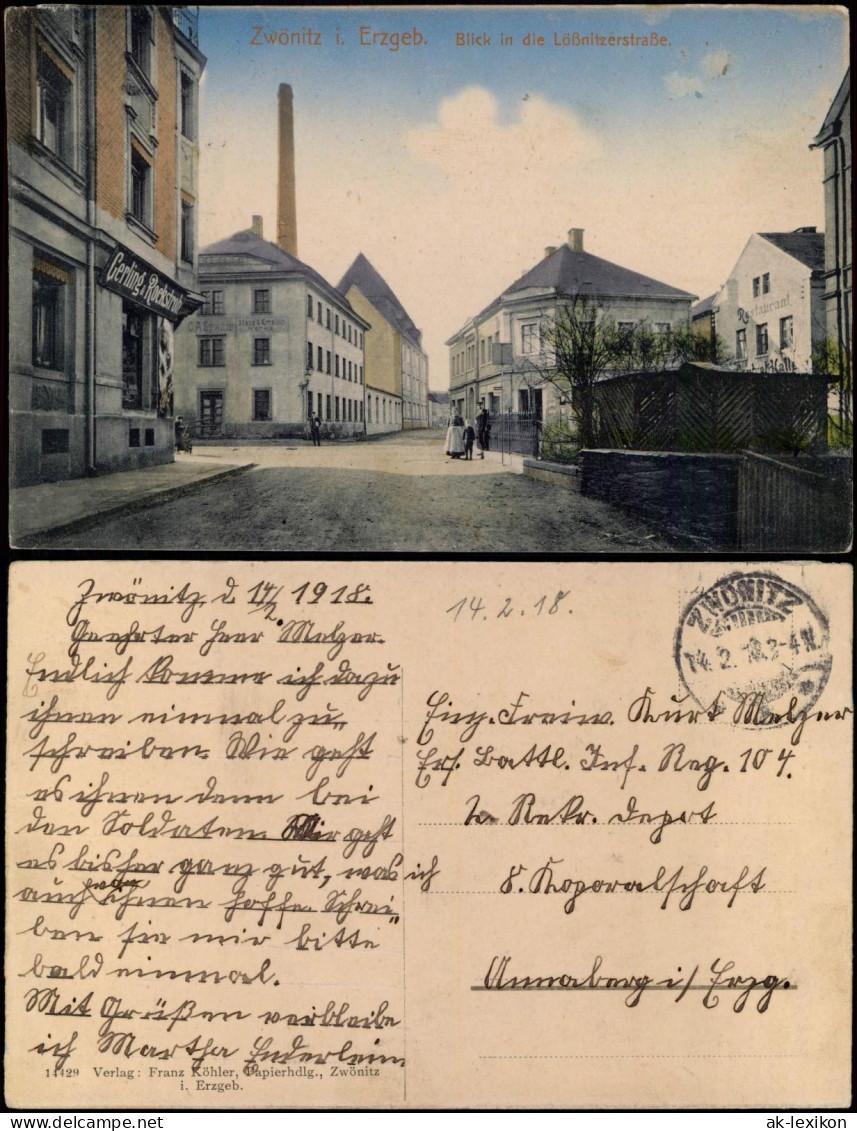 Zwönitz i. Erzgeb. Blick in die Lößnitzerstraße.
Gerling & Rockstroh
Restaurant
Zwönitz, d. 14/2. 1918.
Geehrter Herr Melzer.
Endlich komme ich dazu
ihnen einmal zu
schreiben. Wie geht
es ihnen denn bei
den Soldaten. Mir geht
es bisher ganz gut, was ich
auch von ihnen hoffe. Schrei
ben sie mir bitte
bald einmal.
Mit Grüßen verbleibe
ich Martha Enderlein.
14429 Verlag: Franz Köhler, Papierhdlg., Zwönitz
i. Erzgeb.
14.2.18.
ZWÖNITZ
14.2.18.3-4N.
Einj. Freiw. Kurt Melzer
Ers. Battl. Inf. Reg. 104.
2. Rekr. Depot
8. Koporalschaft
Annaberg i/ Erzg.
ak-lexikon.com